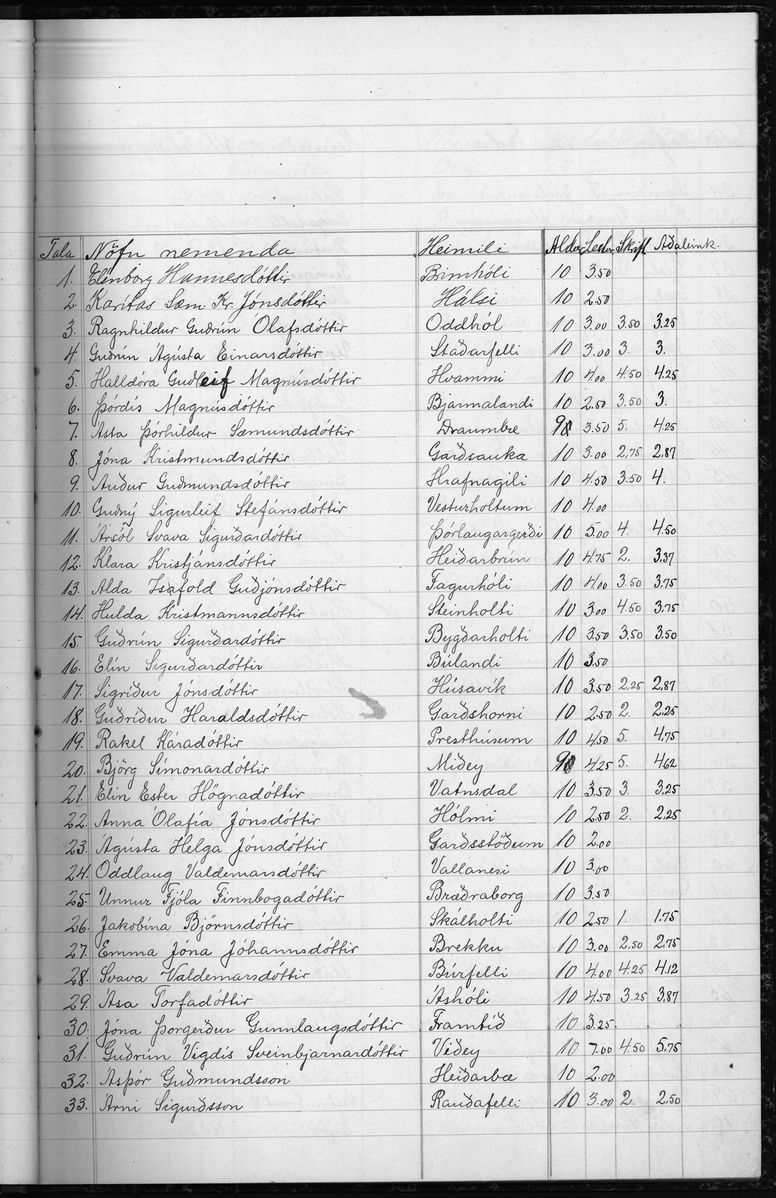 Tala Nöfn nemenda Heimili Aldur Lestur Skrift Aðaleink.
1. Elínborg Hannesdóttir Brimhóli 10 3.50
2. Karítas Sæm Kr. Jónsdóttir Hálsi 10 2.50
3. Ragnhildur Guðrún Ólafsdóttir Oddhól 10 3.00 3.50 3.25
4. Guðrún Ágústa Einarsdóttir Staðarfelli 10 3.00 3. 3.
5. Halldóra Guðleif Magnúsdóttir Hvammi 10 4.00 4.50 4.25
6. Þórdís Magnúsdóttir Bjarmalandi 10 2.50 3.50 3.
7. Ásta Þórhildur Sæmundsdóttir Draumbæ 3.50 5. 4.25
8. Jóna Kristmundsdóttir Garðsauka 10 3.00 2.75 2.87
9. Auður Guðmundsdóttir Hrafnagili 10 4.50 3.50 4.
10. Guðný Sigurleif Stefánsdóttir Vesturholtum 10 4.00
11. Ársól Svava Sigurðardóttir Þórlaugargerði 10 5.00 4. 4.50
12. Klara Kristjánsdóttir Heiðarbrún 10 4.75 2. 3.37
13. Alda Ísafold Guðjónsdóttir Fagurhóli 10 4.00 3.50 3.75
14. Hulda Kristmannsdóttir Steinholti 10 3.00 4.50 3.75
15. Guðrún Sigurðardóttir Bygðarholti 10 3.50 3.50 3.50
16. Elín Sigurðardóttir Búlandi 10 3.50
17. Sigríður Jónsdóttir Húsavík 10 3.50 2.25 2.87
18. Guðríður Haraldsdóttir Garðshorni 10 2.50 2. 2.25
19. Rakel Káradóttir Presthúsum 10 4.50 5. 4.75
20. Björg Símonardóttir Miðey 4.25 5. 4.62
21. Elín Ester Högnadóttir Vatnsdal 10 3.50 3. 3.25
22. Anna Ólafía Jónsdóttir Hólmi 10 2.50 2. 2.25
23. Ágústa Helga Jónsdóttir Garðsstöðum 10 2.00
24. Oddlaug Valdemarsdóttir Vallanesi 10 3.00
25. Unnur Fjóla Finnbogadóttir Bræðraborg 10 3.50
26. Jakobína Björnsdóttir Skálholti 10 2.50 1. 1.75
27. Emma Jóna Jóhannsdóttir Brekku 10 3.00 2.50 2.75
28. Svava Valdemarsdóttir Búrfelli 10 4.00 4.25 4.12
29. Ása Torfadóttir Áshóli 10 4.50 3.25 3.87
30. Jóna Þorgerður Gunnlaugsdóttir Framtíð 10 3.25
31. Guðrún Vigdís Sveinbjarnardóttir Viðey 10 7.00 4.50 5.75
32. Ásþór Guðmundsson Heiðarbæ 10 2.00
33. Árni Sigurðsson Rauðafelli 10 3.00 2. 2.50